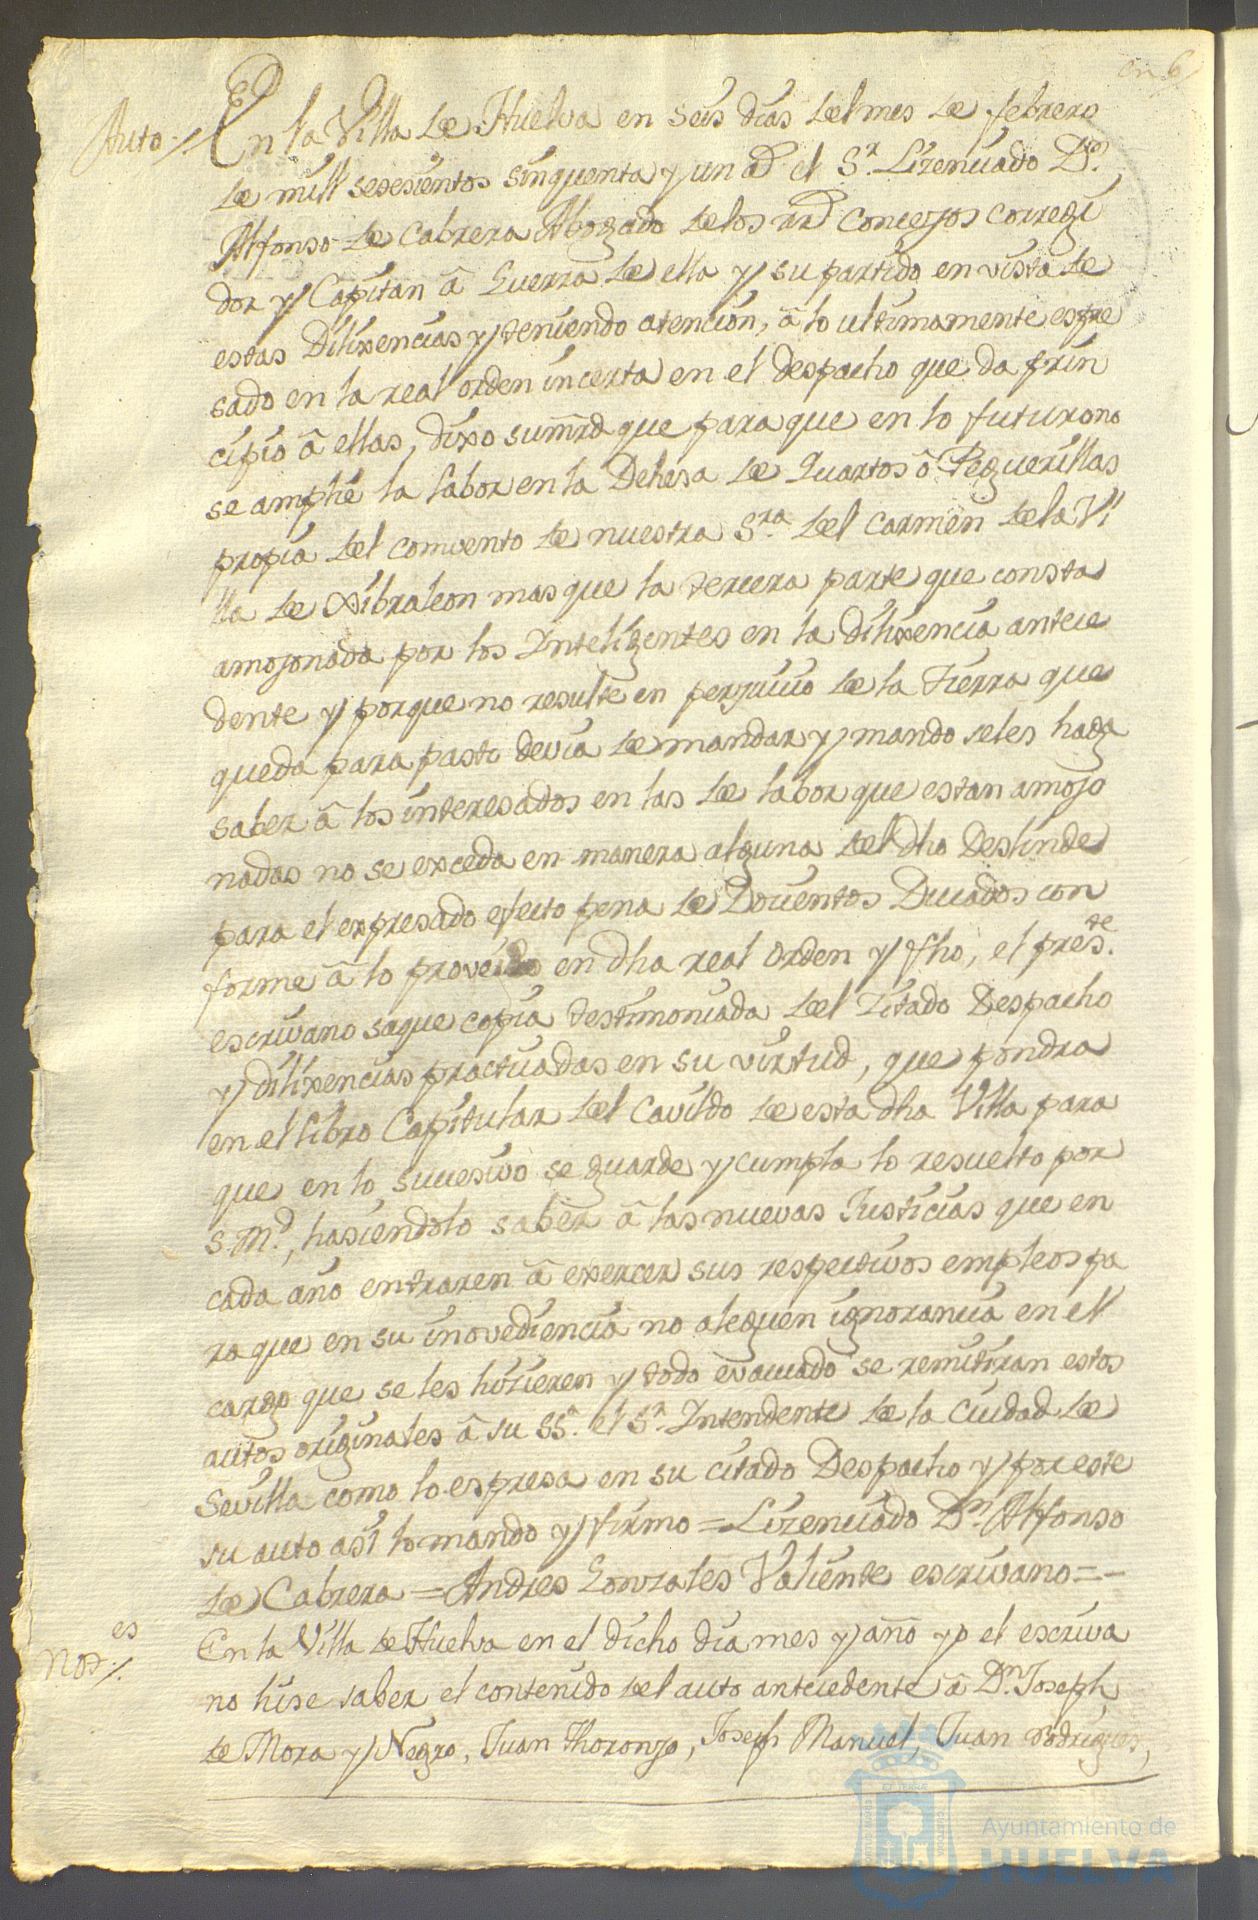 en 6
Auto //.
En la Villa de Huelva en seis dias del mes de febrero
de mill sesesientos sinquenta y un ad el Sr. Lizenciado Dn.
Alfonso de Cabrera Abogado de los rrd Concejos corregi
dor y Capitan â Guerra de ella y su partido en vista de
estas Dilixencias y teniendo atencion, â lo ultimamente espre
sado en la real orden incerta en el despacho que da prin
cipio â ellas, dixo sumrd que para que en lo futuro no
se amplie la labor en la Dehesa de Quartos ô Peguerillas
propia del comvento de nuestra Sra. del Carmen de la Vi
lla de Xibraleon mas que la tercera parte que consta
amojonada por los Inteligentes en la dilixencia antece
dente y porque no resulte en perjuicio de la tierra que
queda para pasto devia de mandar y mando se les haga
saber â los interesados en las de labor que estan amojo
nadas no se exceda en manera alguna del dho Deslinde
para el expresado efecto pena de Docientos Ducados con
forme â lo proveido en dha real orden y fho, el preste.
escrivano saque copia testimoniada del Zitado Despacho
y dilixencias practicadas en su virtud, que pondra
en el libro Capitular del Cavildo de esta dha Villa para
que en lo sucesivo se guarde y cumpla lo resuelto por
S. Md., hasiendolo saber â las nuevas Justicias que en
cada año entraren â exercer sus respectivos empleos pa
ra que en su inovediencia no aleguen ignorancia en el
cargo que se les hizieren y todo evacuado se remitiran estos
autos originales â su SSa. el Sr. Intendente de la Ciudad de
Sevilla como lo espresa en su citado Despacho y por este
su auto asi lo mando y firmo = Lizenciado Dn. Alfonso
de Cabrera = Andres Gonzales Valiente escrivano = -
Notes //.
En la Villa de Huelva en el dicho dia mes y año yo el escriva
no hise saber el contenido del auto antecedente â Dn. Joseph
de Mora y Negro, Juan Thoronjo, Joseph Manuel, Juan Rodrigues,
Ayuntamiento de
HUELVA